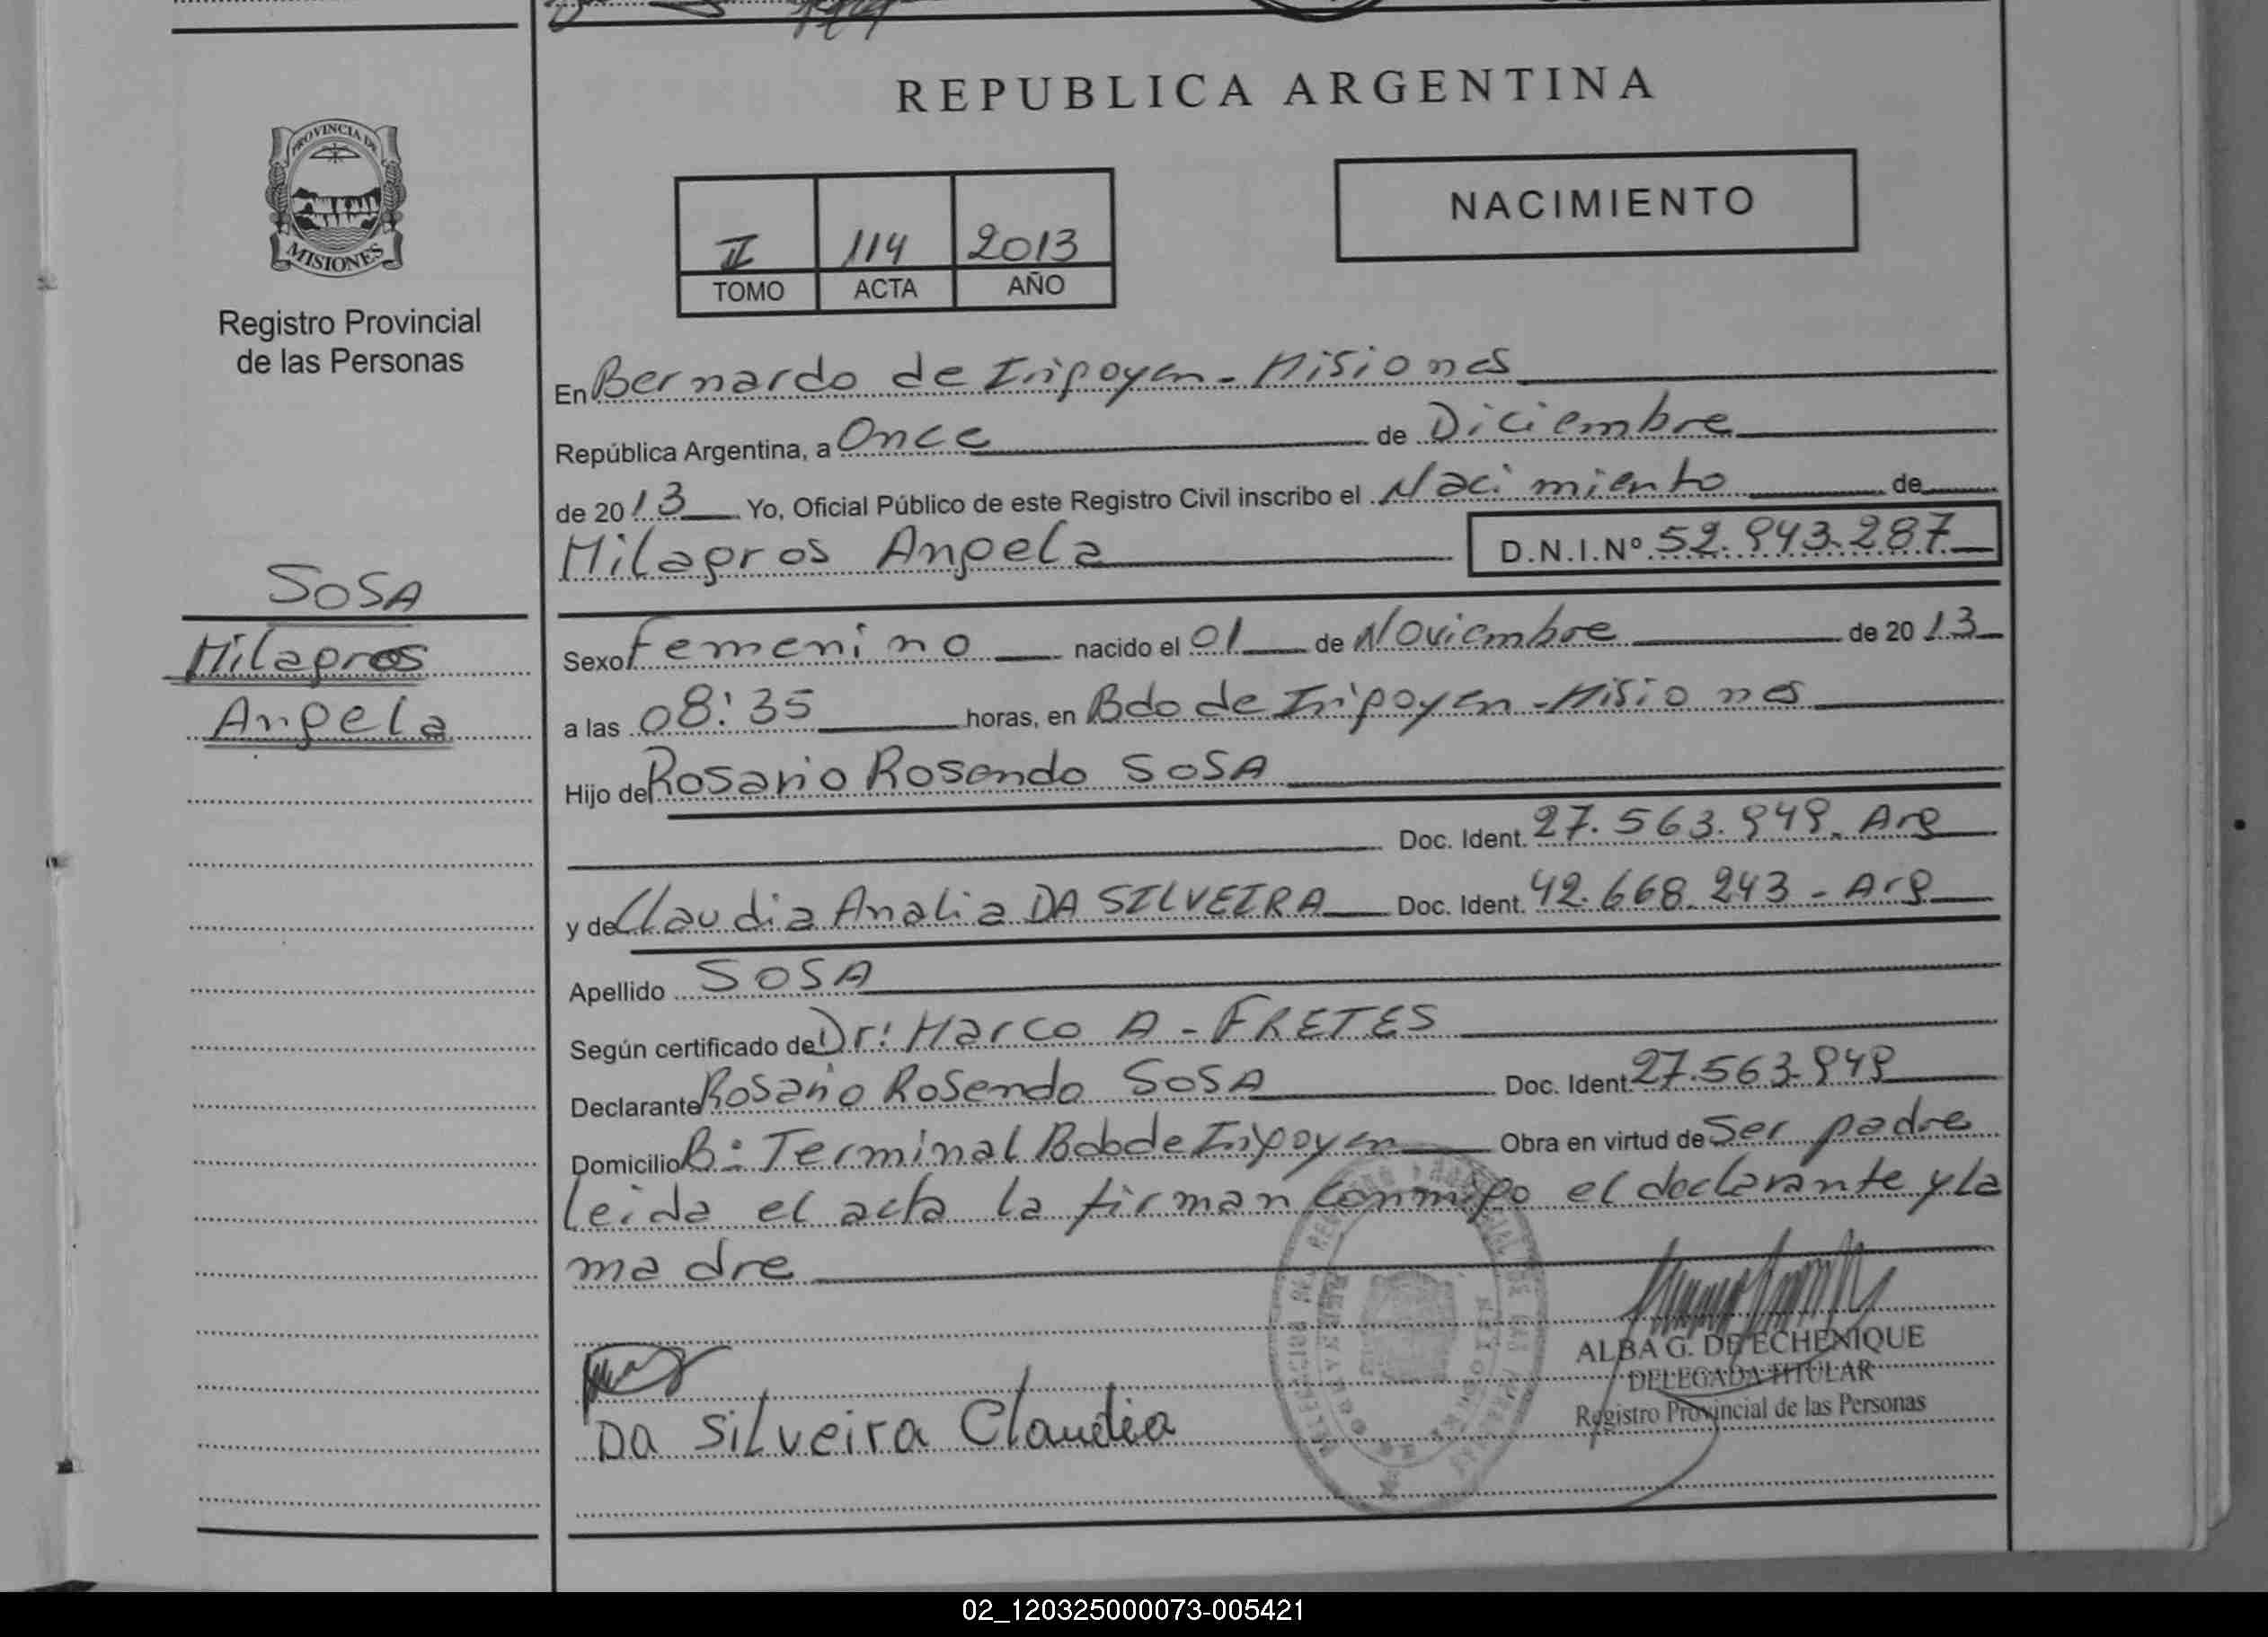 REPUBLICA ARGENTINA
PROVINCIA DE
MISIONES
Registro Provincial
de las Personas
NACIMIENTO
II 114 2013
TOMO ACTA AÑO
En Bernardo de Irigoyen - Misiones
República Argentina, a Once de Diciembre
de 2013 Yo, Oficial Público de este Registro Civil inscribo el Nacimiento de
Milagros Angela D.N.I.Nº 52.943.287
SOSA
Milagros
Angela
Sexo Femenino nacido el 01 de Noviembre de 2013
a las 08:35 horas, en Bdo de Irigoyen - Misiones
Hijo de Rosario Rosendo SOSA
Doc. Ident. 27.563.949. Arg
y de Claudia Analia DA SILVEIRA Doc. Ident. 42.668.243 - Arg
Apellido SOSA
Según certificado de Dr: Marco A - FRETES
Declarante Rosario Rosendo SOSA Doc. Ident. 27.563.949
Domicilio B: Terminal Bdo de Irigoyen Obra en virtud de Ser padre
leida el acta la firman conmigo el declarante y la
madre
ALBA G. DE ECHENIQUE
DELEGADA TITULAR
Registro Provincial de las Personas
DA SiLveira Claudia
02_120325000073-005421